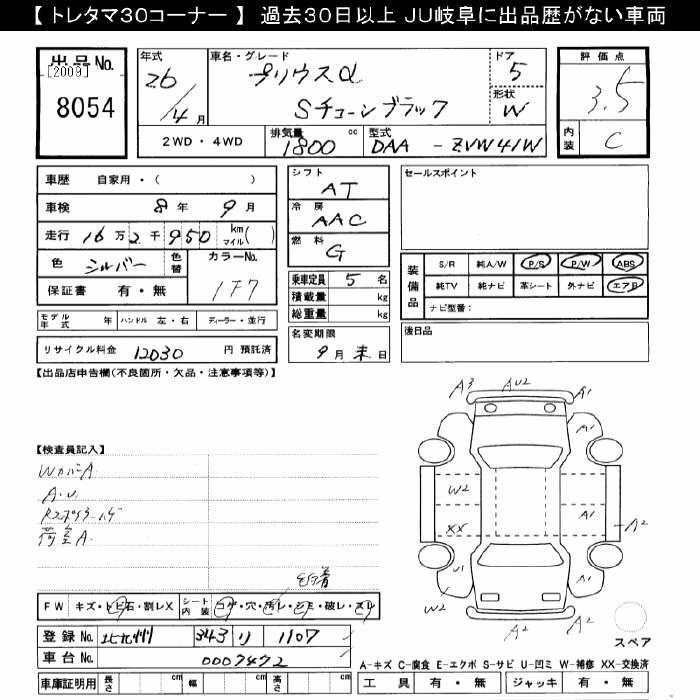 【 トレタマ30コーナー 】 過去30日以上 JU岐阜に出品歴がない車両
出品No.
[2009]
8054
年式 26/4月
車名・グレード プリウスα
Sチューンブラック
ドア 5
形状 W
評価点 3.5
内装 C
2WD・4WD
排気量 1800 cc
型式 DAA - ZVW41W
車歴 自家用・( )
車検 8年 9月
走行 16万2千950 km マイル( )
色 シルバー 色替
カラーNo. 1F7
保証書 有・無
モデル年式 年 ハンドル 左・右 ディーラー・並行
リサイクル料金 12030 円 預託済
シフト AT
冷房 AAC
燃料 G
乗車定員 5 名
積載量 kg
総重量 kg
名変期限
9月末日
セールスポイント
装備品
S/R 純A/W P/S P/W ABS
純TV 純ナビ 革シート 外ナビ エアB
ナビ型番:
後日品
【出品店申告欄(不良箇所・欠品・注意事項等)】
【検査員記入】
WカバーA
A.U.
荷室A.
A3 AU2 A1
A1
W2
A1
XX
A2
U1
A1
W2
A2
A2
スペア
FW キズ・トビ石・割レX シート内装 コゲ・穴・汚レ・シミ・破レ・スレ
登録No. 北九州 343 リ 1107
車台No. 0007472
A-キズ C-腐食 E-エクボ S-サビ U-凹ミ W-補修 XX-交換済
車庫証明用 長さ cm 幅 cm 高さ cm
工具 有・無 ジャッキ 有・無